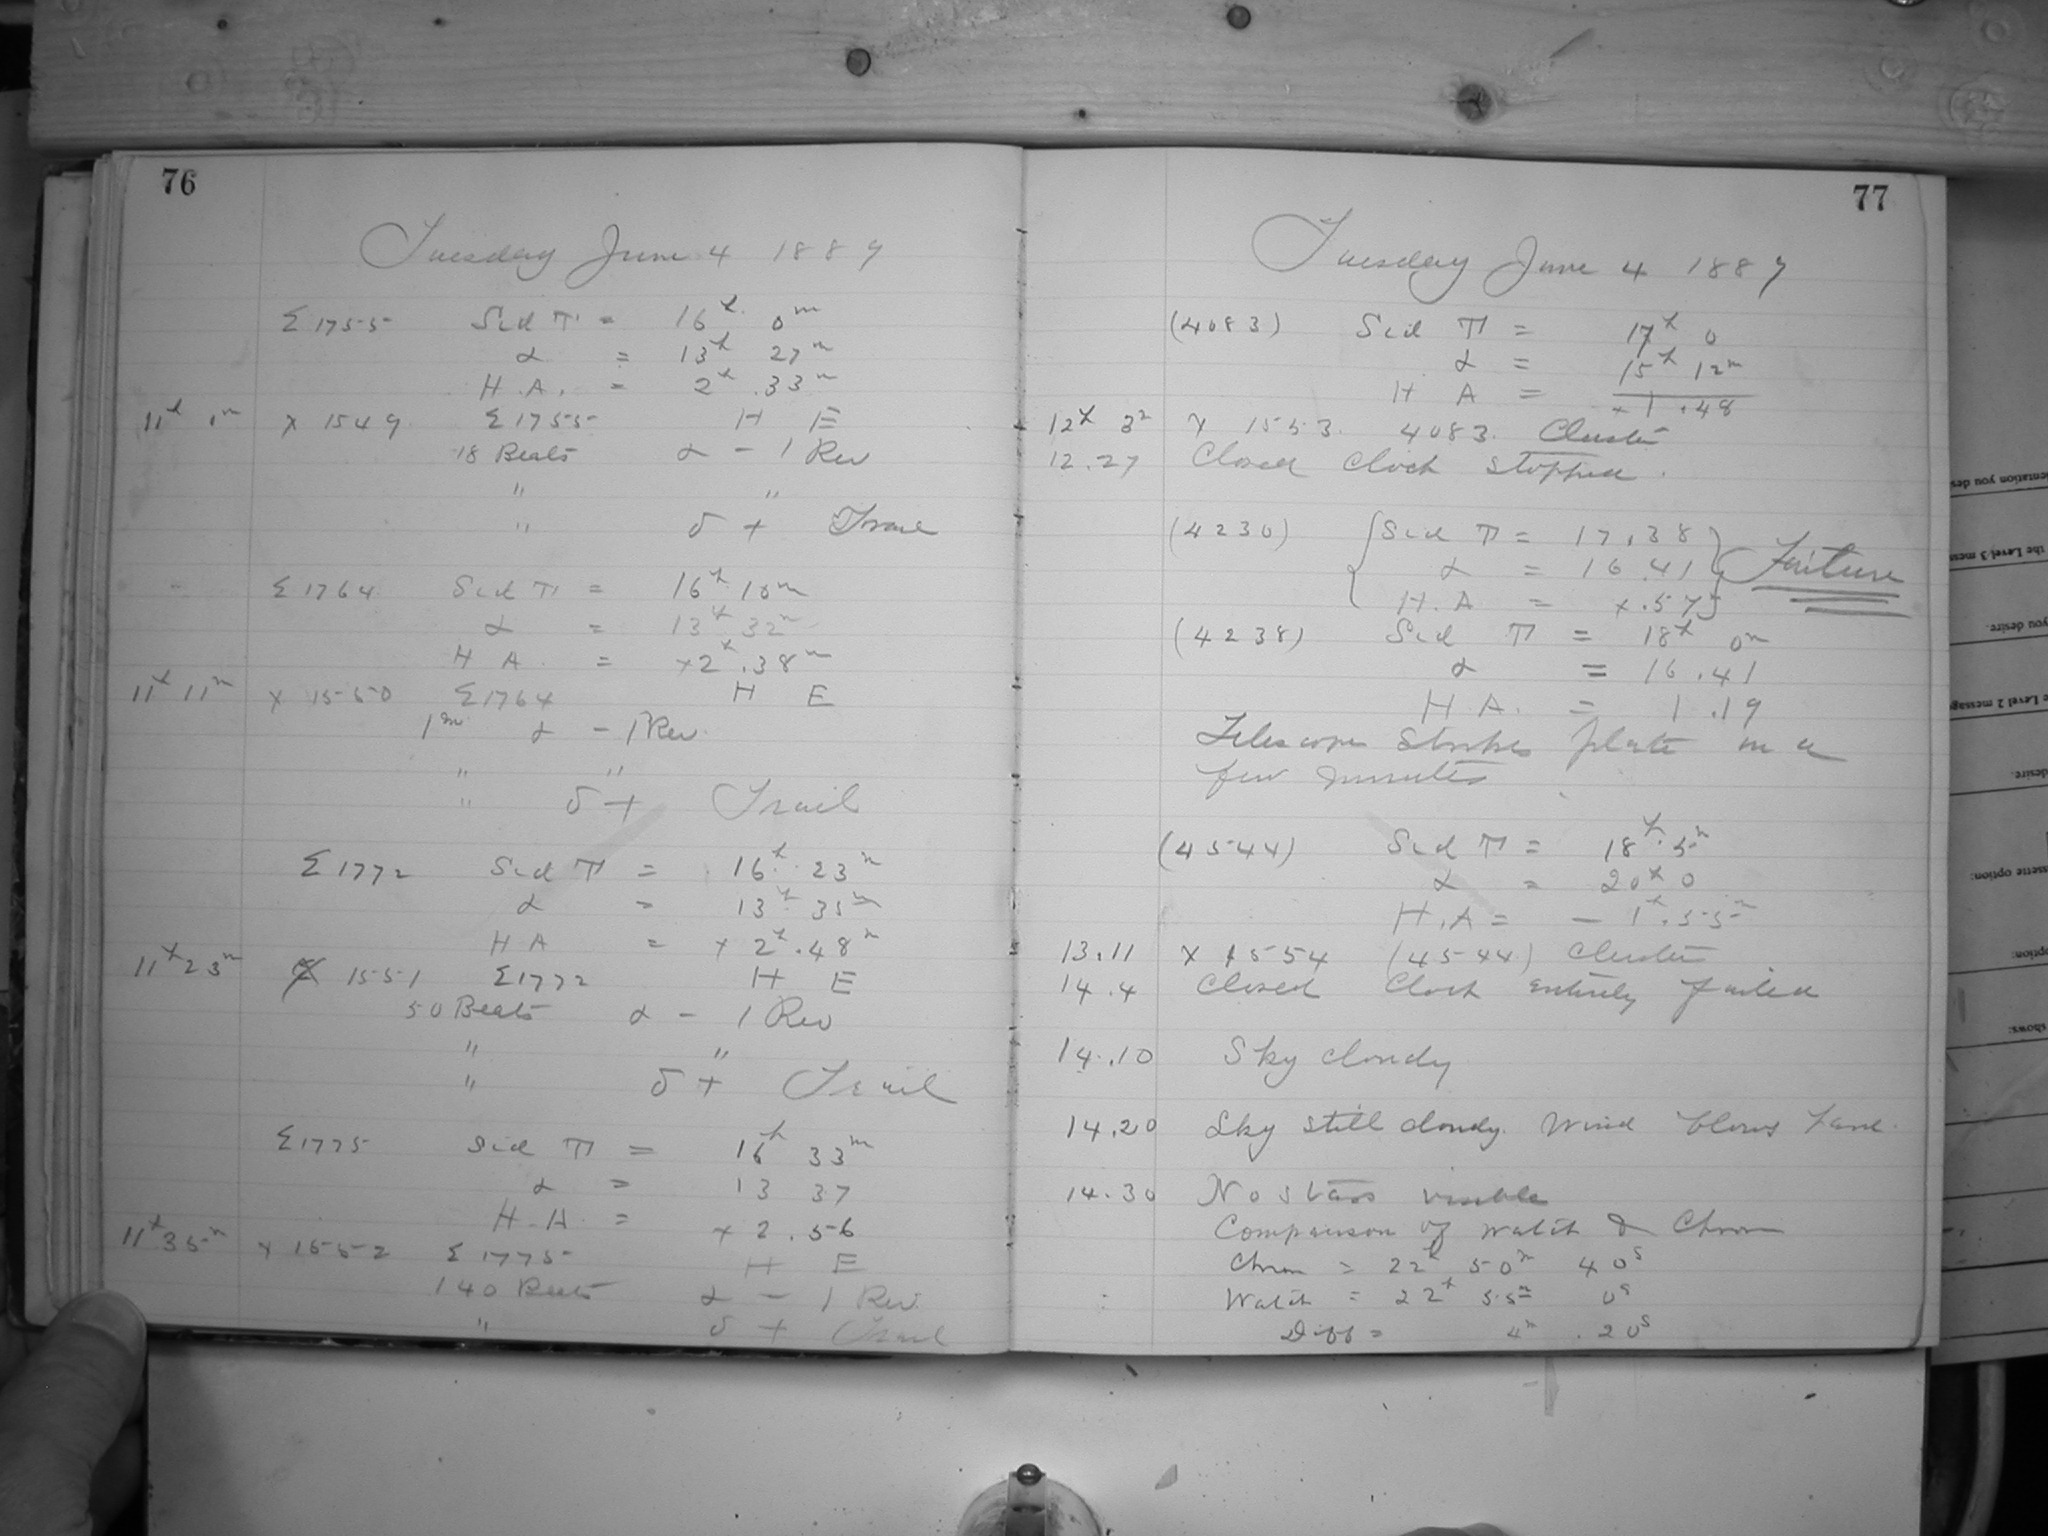 76
Tuesday June 4 1889
Σ 1755 Sid T = 16h 0m
α = 13h 27m
H.A. = 2h.33m
11h 1m X 1549 Σ 1755 H E
18 Beats α - 1 Rev
" "
" δ + Trail
Σ 1764 Sid T = 16h 10m
α = 13h 32m
H A. = +2h.38m
11h 11m X 1550 Σ 1764 H E
1m α - 1 Rev.
" "
" δ + Trail
Σ 1772 Sid T = 16h 23m
α = 13h 35m
H A = + 2h.48m
11h 23m X 1551 Σ 1772 H E
50 Beats α - 1 Rev
" "
" δ + Trail
Σ 1775 Sid T = 16h 33m
α = 13 37
H.A. = + 2.56
11h 35m X 1552 Σ 1775 H E
140 Beats α - 1 Rev.
" δ + Trail
77
Tuesday June 4 1889
(4083) Sid T = 17h 0
α = 15h 12m
H A = + 1.48
12h 3m X 1553. 4083. Cluster
12.27 Closed Clock stopped.
(4230) Sid T = 17.38
α = 16.41 Failure
H.A = +.57
(4238) Sid T = 18h 0m
α = 16.41
H A. = 1.19
Telescope strikes plate in a
few minutes
(4544) Sid T = 18h.5m
α = 20h 0
H.A = - 1h.55m
13.11 X 1554 (4544) Cluster
14.4 Closed Clock entirely failed
14.10 Sky cloudy
14.20 Sky still cloudy. Wind blows hard.
14.30 No stars visible
Comparison of Watch & Chron
Chron = 22h 50m 40s
Watch = 22h 55m 0s
Diff = 4m.20s